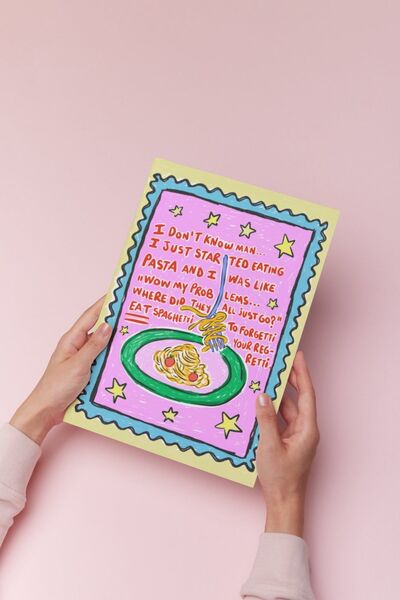 I DON'T KNOW MAN...
I JUST STARTED EATING
PASTA AND I WAS LIKE
"WOW MY PROBLEMS...
WHERE DID THEY ALL JUST GO?"
EAT SPAGHETTI TO FORGETTI
YOUR REG-
RETTI